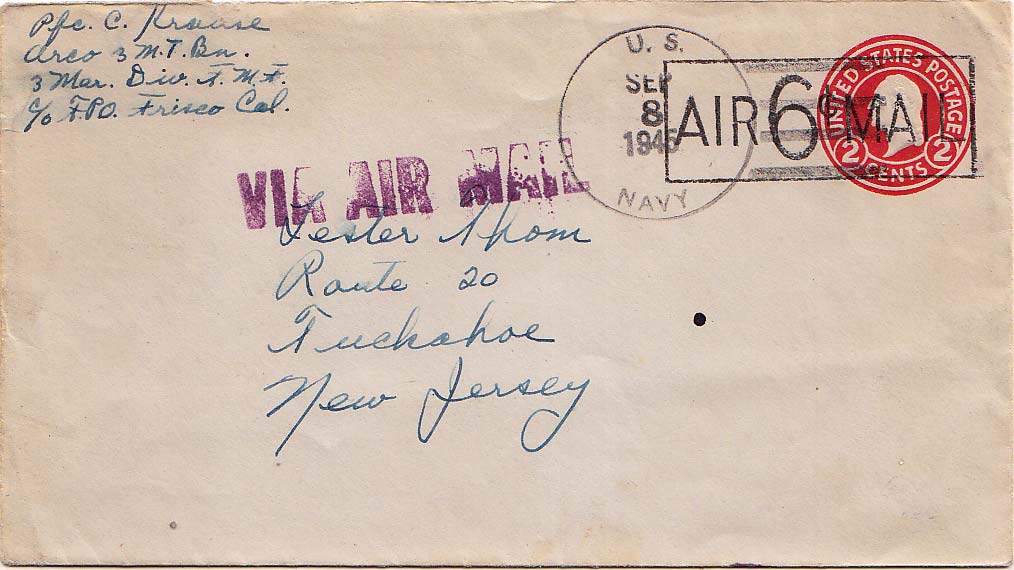 Pfc. C. Krause
Arco 3 M.T. Bn.
3 Mar. Div. F.M.F.
c/o F.P.O. Frisco Cal.
U. S.
SEP
8
NAVY
AIR 6c MAIL
UNITED STATES POSTAGE
2 CENTS 2
VIA AIR MAIL
Lester Thom
Route 20
Tuckahoe
New Jersey